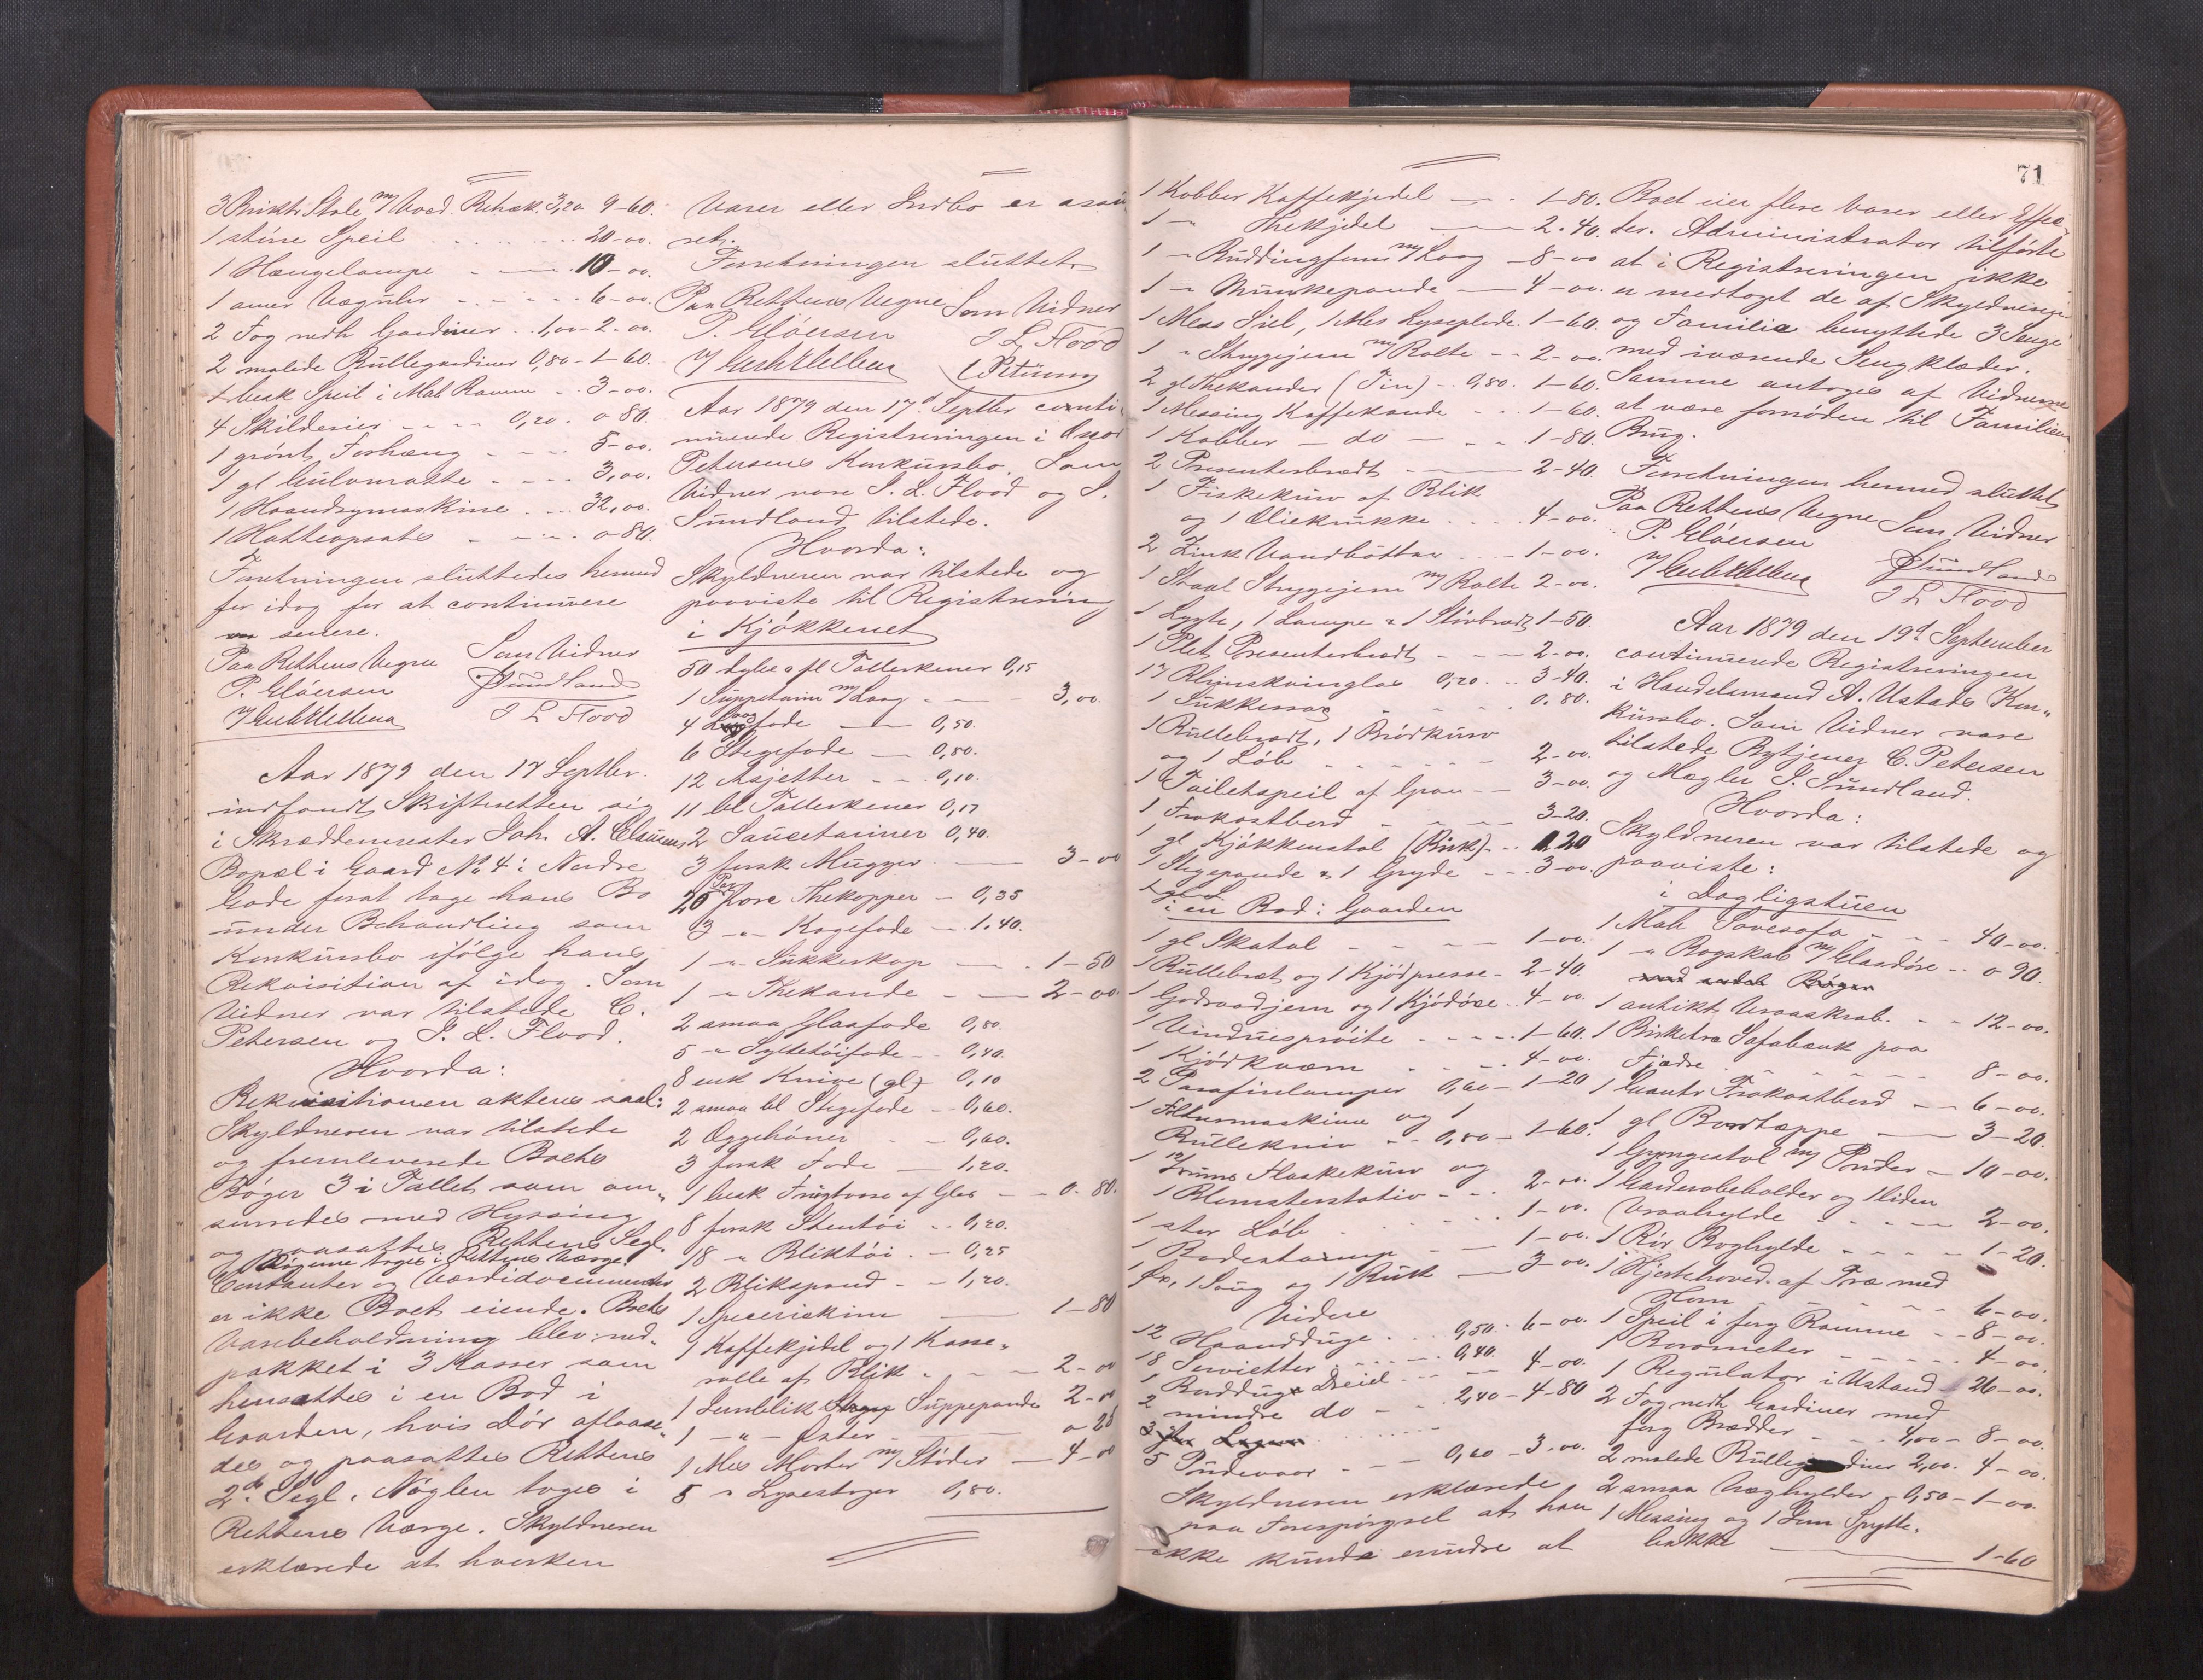 3 Birkts Stole m/ Voxd. Betræk. 3,20 9-60.
1 større Speil 20-00.
1 Hængelampe 10-00.
1 amer Væguhr 6-00.
2 Fag nedh Gardiner 1,00-2-00.
2 malede Rullegardiner 0,80-1-60.
1 besk Speil i Mah Ramme 3-00.
4 Skilderier 0,20. 0 80.
1 grønt Forhæng 5-00.
1 gl Gulvmatte 3,00.
1 Haandsymaskine 32,00.
1 Hatteopsats 0 80.
Forretningen sluttedes hermed
for idag for at continuere
senere.
Paa Rettens Vegne Som Vidner
P. Gløersen JSundland
J L Flood
Aar 1879 den 17 Septbr.
indfandt Skifteretten sig
i Skræddermester Joh. A. Clausens
Bopæl i Gaard No 4 i Nedre
Gade forat tage hans Bo
under Behandling som
Konkursbo ifølge hans
Rekvisition af idag. Som
Vidner var tilstede C.
Petersen og J. L. Flood.
Hvorda:
Rekvisitionen aktens saal:
Skyldneren var tilstede
og fremleverede Boets
Bøger 3 i Tallet som om-
snørtes med Hyssing
og paasattes Rettens Segl.
Bøgerne toges i Rettens Værge.
Contanter og Værdidocumenter
er ikke Boet eiende. Boets
Varebeholdning blev ned-
pakket i 3 Kasser som
hensattes i en Bod i
Gaarden, hvis Dør aflaase-
des og paasattes Rettens
2de Segl. Nøglen toges i
Rettens Værge. Skyldneren
erklærede at hverken
Varer eller Indbo er assu-
ret.
Forretningen sluttet
Paa Rettens Vegne Som Vidner
P. Gløersen J L Flood
C Petersen
Aar 1879 den 17d Septbr conti-
nuerede Registreringen i Oscar
Petersens Konkursbo. Som
Vidner vare J. L. Flood og J.
Sundland tilstede.
Hvorda:
Skyldneren var tilstede og
paaviste til Registrering
i Kjøkkenet
50 dybe o fl Tallerkener 0,15
1 Suppeterin m/ Laag 3,00
4 Laagfade 0,50.
6 Stegefade 0,80.
12 Asjetter 0,10.
11 bl Tallerkener 0,17
2 Saucetariner 0,40.
3 forsk Mugger 3-00
20 Par porc Thekopper 0,35
3 -"- Kagefade 1.40.
1 -"- Sukkerkop 1-50
1 -"- Thekande 2-00.
2 smaa Glasfade 0,80.
5 -"- Syltetøifade 0,40.
8 enk Knive (gl) 0,10
2 smaa bl Stegefade 0,60.
2 Æggehøner 0,60.
3 forsk Fade 1,20.
1 besk Frugtvase af Glas 0.80.
8 forsk Stentøi 0,20.
18 -"- Bliktøi 0,25
2 Blikspand 1,20.
1 Speceriskrin 1-80
1 Kaffekjedel og 1 Kasse-
rolle af Blik 2-00
1 Jernblik Suppepande 2-00
1 -"- Øster 0 25
1 Mes Morter m/ Støder 4-00
5 -"- Lysestager 0,80.
71
1 Kobber Kaffekjedel 1-80.
1 -"- Thekjedel 2.40.
1 -"- Buddingform m/ Laag 8-00
1 -"- Munkepande 4-00.
1 Mess Siel, 1 Mes Lyseplade. 1-60.
1 -"- Strygejern m/ Bolte 2-00.
2 gl Thekander (Tin) 0,80. 1-60.
1 Messing Kaffekande 1-60.
1 Kobber - do - 1-80.
2 Presenterbrædt 2-40.
1 Fiskekurv af Blik
og 1 Oliekrukke 4-00.
2 Zink Vandbøtter 1-00.
1 Staal Strygejern m/ Bolte 2-00.
1 Lygte, 1 Lampe & 1 Skivbrædt 1-50.
1 Plet Presenterbrædt 2-00.
17 Rhinskvinglas 0,20 3-40.
1 Sukkersag 0.80.
1 Rullebrædt, 1 Brødkurv
og 1 Løb 2-00.
1 Toiletspeil af Gran 3-00.
1 Frokostbord 3-20.
1 gl Kjøkkenstol (Birk) 1.20
1 Stegepande & 1 Gryde 3-00.
i en Bod i Gaarden
1 gl Skatol 1-00.
1 Rullebræt og 1 Kjødpresse 2-40.
1 Godraadjern og 1 Kjødøse 4-00.
1 Vinduesprøite 1-60.
1 Kjødkværn 4-00.
2 Parafinlamper 0,60-1-20
1 Filtrermaskine og 1
Rullekniv 0,80-1-60.
1 12/Rums Flaskekurv og
1 Blomsterstativ 2-00.
1 stor Løb 1-00.
1 Badestamp 1-00.
1 Øx, 1 Saug og 1 Buk 3-00.
Videre
12 Haandduge 0,50. 6-00.
18 Servietter 0,40.
1 Borddug Dreiel 4-00.
2 mindre do 2,40-4-80
5 Pudevaar 0,60-3-00.
Skyldneren erklærede
paa Forespørgsel at han
ikke kunde erindre at
Boet eier flere Varer eller Effec-
ter. Administrator tilførte
at i Registreringen ikke
er medtaget de af Skyldneren
og Familie benyttede 3 Senge
med iværende Sengklæder.
Samme antoges af Vidnerne
at være fornøden til Familiens
Brug.
Forretningen hermed sluttet
Paa Rettens Vegne Som Vidner
P. Gløersen
JSundland
J L Flood
Aar 1879 den 19d September
continuerede Registreringen
i Handelsmand A. Ustads Kon-
kursbo. Som Vidner vare
tilstede Bytjener C. Petersen
og Mægler J. Sundland.
Hvorda:
Skyldneren var tilstede og
paaviste:
i Dagligstuen
1 Mah Sovesofa 40-00.
1 -"- Bogskab m/ Glasdøre 0 90.
1 antikt Vraaskab 12-00.
1 Birketræ Sofabænk paa
Fjædre 8-00.
1 Frokostbord 6-00.
1 gl. Bordtæppe 3-20.
1 Gyngestol m/ Puder 10-00.
1 Garderobeholder og 1 liden
Vraahylde 2-00.
1 Rør Boghylde 1-20.
1 Hjortehoved af Træ med
Horn 6-00.
1 Speil i forg Ramme 8-00.
1 Barometer 4-00.
1 Regulator i Ustand 26-00.
2 Fag nedh Gardiner med
forg Brædder 4,00-8-00.
2 malede Rullegardiner 2,00. 4-00.
2 smaa Væghylder 0,50-1-00.
1 Messing og 1 Jern Spytte-
bakke 1-60